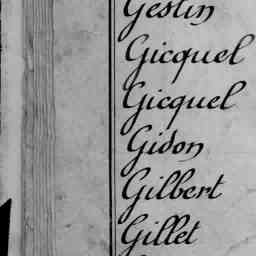 Gestin
Gicquel
Gicquel
Gidon
Gilbert
Gillet